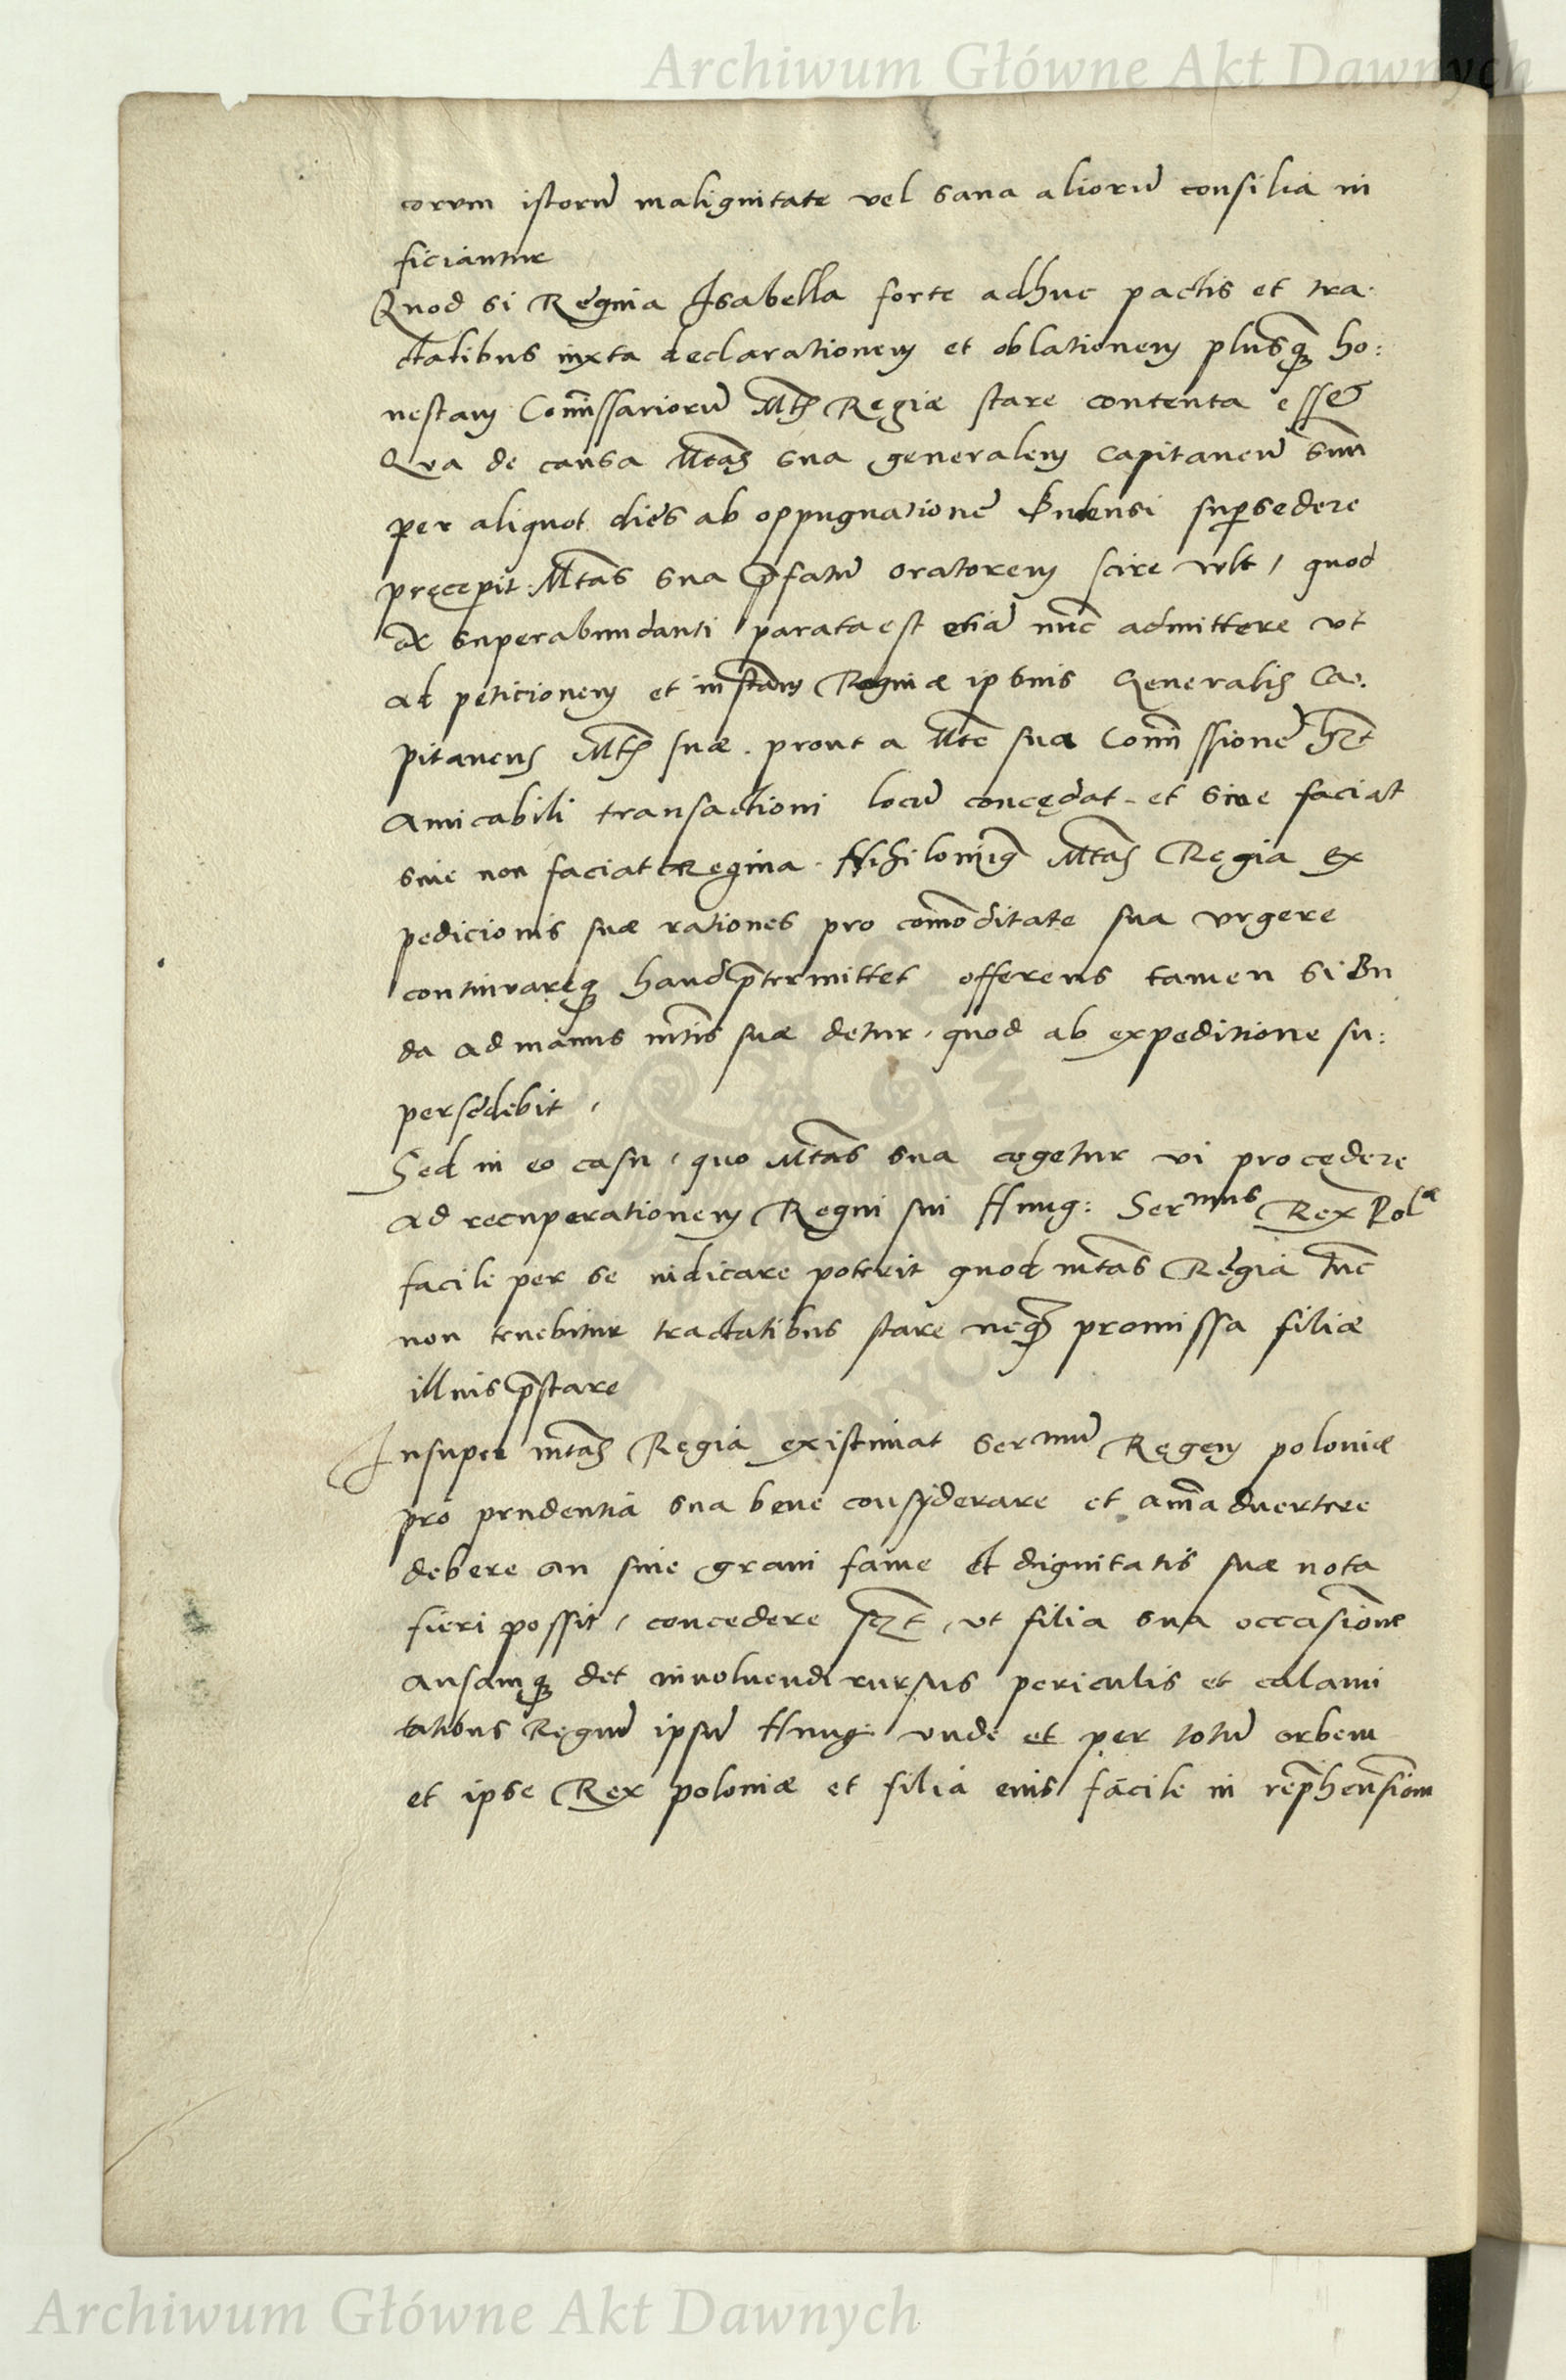 Archiwum Główne Akt Dawnych
corum istorū malignitate vel sana aliorū consilia in
ficiantur
Quod si Regina Isabella forte adhuc pactis et tra.
ctatibus iuxta declarationem et oblationem plusq̃ ho:
nestam Com̃issariorū Mt̃is Regiæ stare contenta esset
Qua de causa Mtas̃ sua generalem capitaneū suum
per aliquot dies ab oppugnatione Budensi supersedere
pręcepit. Mtas̃ sua p̃fatū oratorem scire vult, quod
ex superabundanti parata est etiā nūc admittere vt
ad peticionem et instañ Reginæ ipsius Generalis Ca:
pitaneus Mt̃is suæ. prout a Mtẽ sua Com̃issionē hz̃t
amicabili transactioni locū concędat. et siue faciat
siue non faciat Regina. Nihilominq̃ Mtas̃ Regia ex
pedicionis suæ rationes pro com̃oditate sua vrgere
continuareq̃ haud p̃termittet offerens tamen si Bu
da ad manus mt̃is suæ detur, quod ab expeditione su:
persedebit,
Sed in eo casu, quo Mtas̃ sua cogetur vi procędere
ad recuperationem Regni sui Hung: Sermus Rex Pola
facile per se iudicare poterit quod mtas̃ Regia tũc
non tenebitur tractatibus stare neq̃ promissa filiæ
illius p̃stare
Insuper mtas̃ Regia existimat sermū Regem poloniæ
pro prudentia sua bene consyderare et am̃aduertere
debere an sine graui fame et dignitatis suæ nota
fieri possit, concedere sz̃t, vt filia sua occasionē
ansamq̃ det inuoluendi rursus periculis et calami
tatibus Regnū ipsū Hung: vnde et per totū orbem
et ipse Rex poloniæ et filia eius facile in rep̃hensionem
Archiwum Główne Akt Dawnych